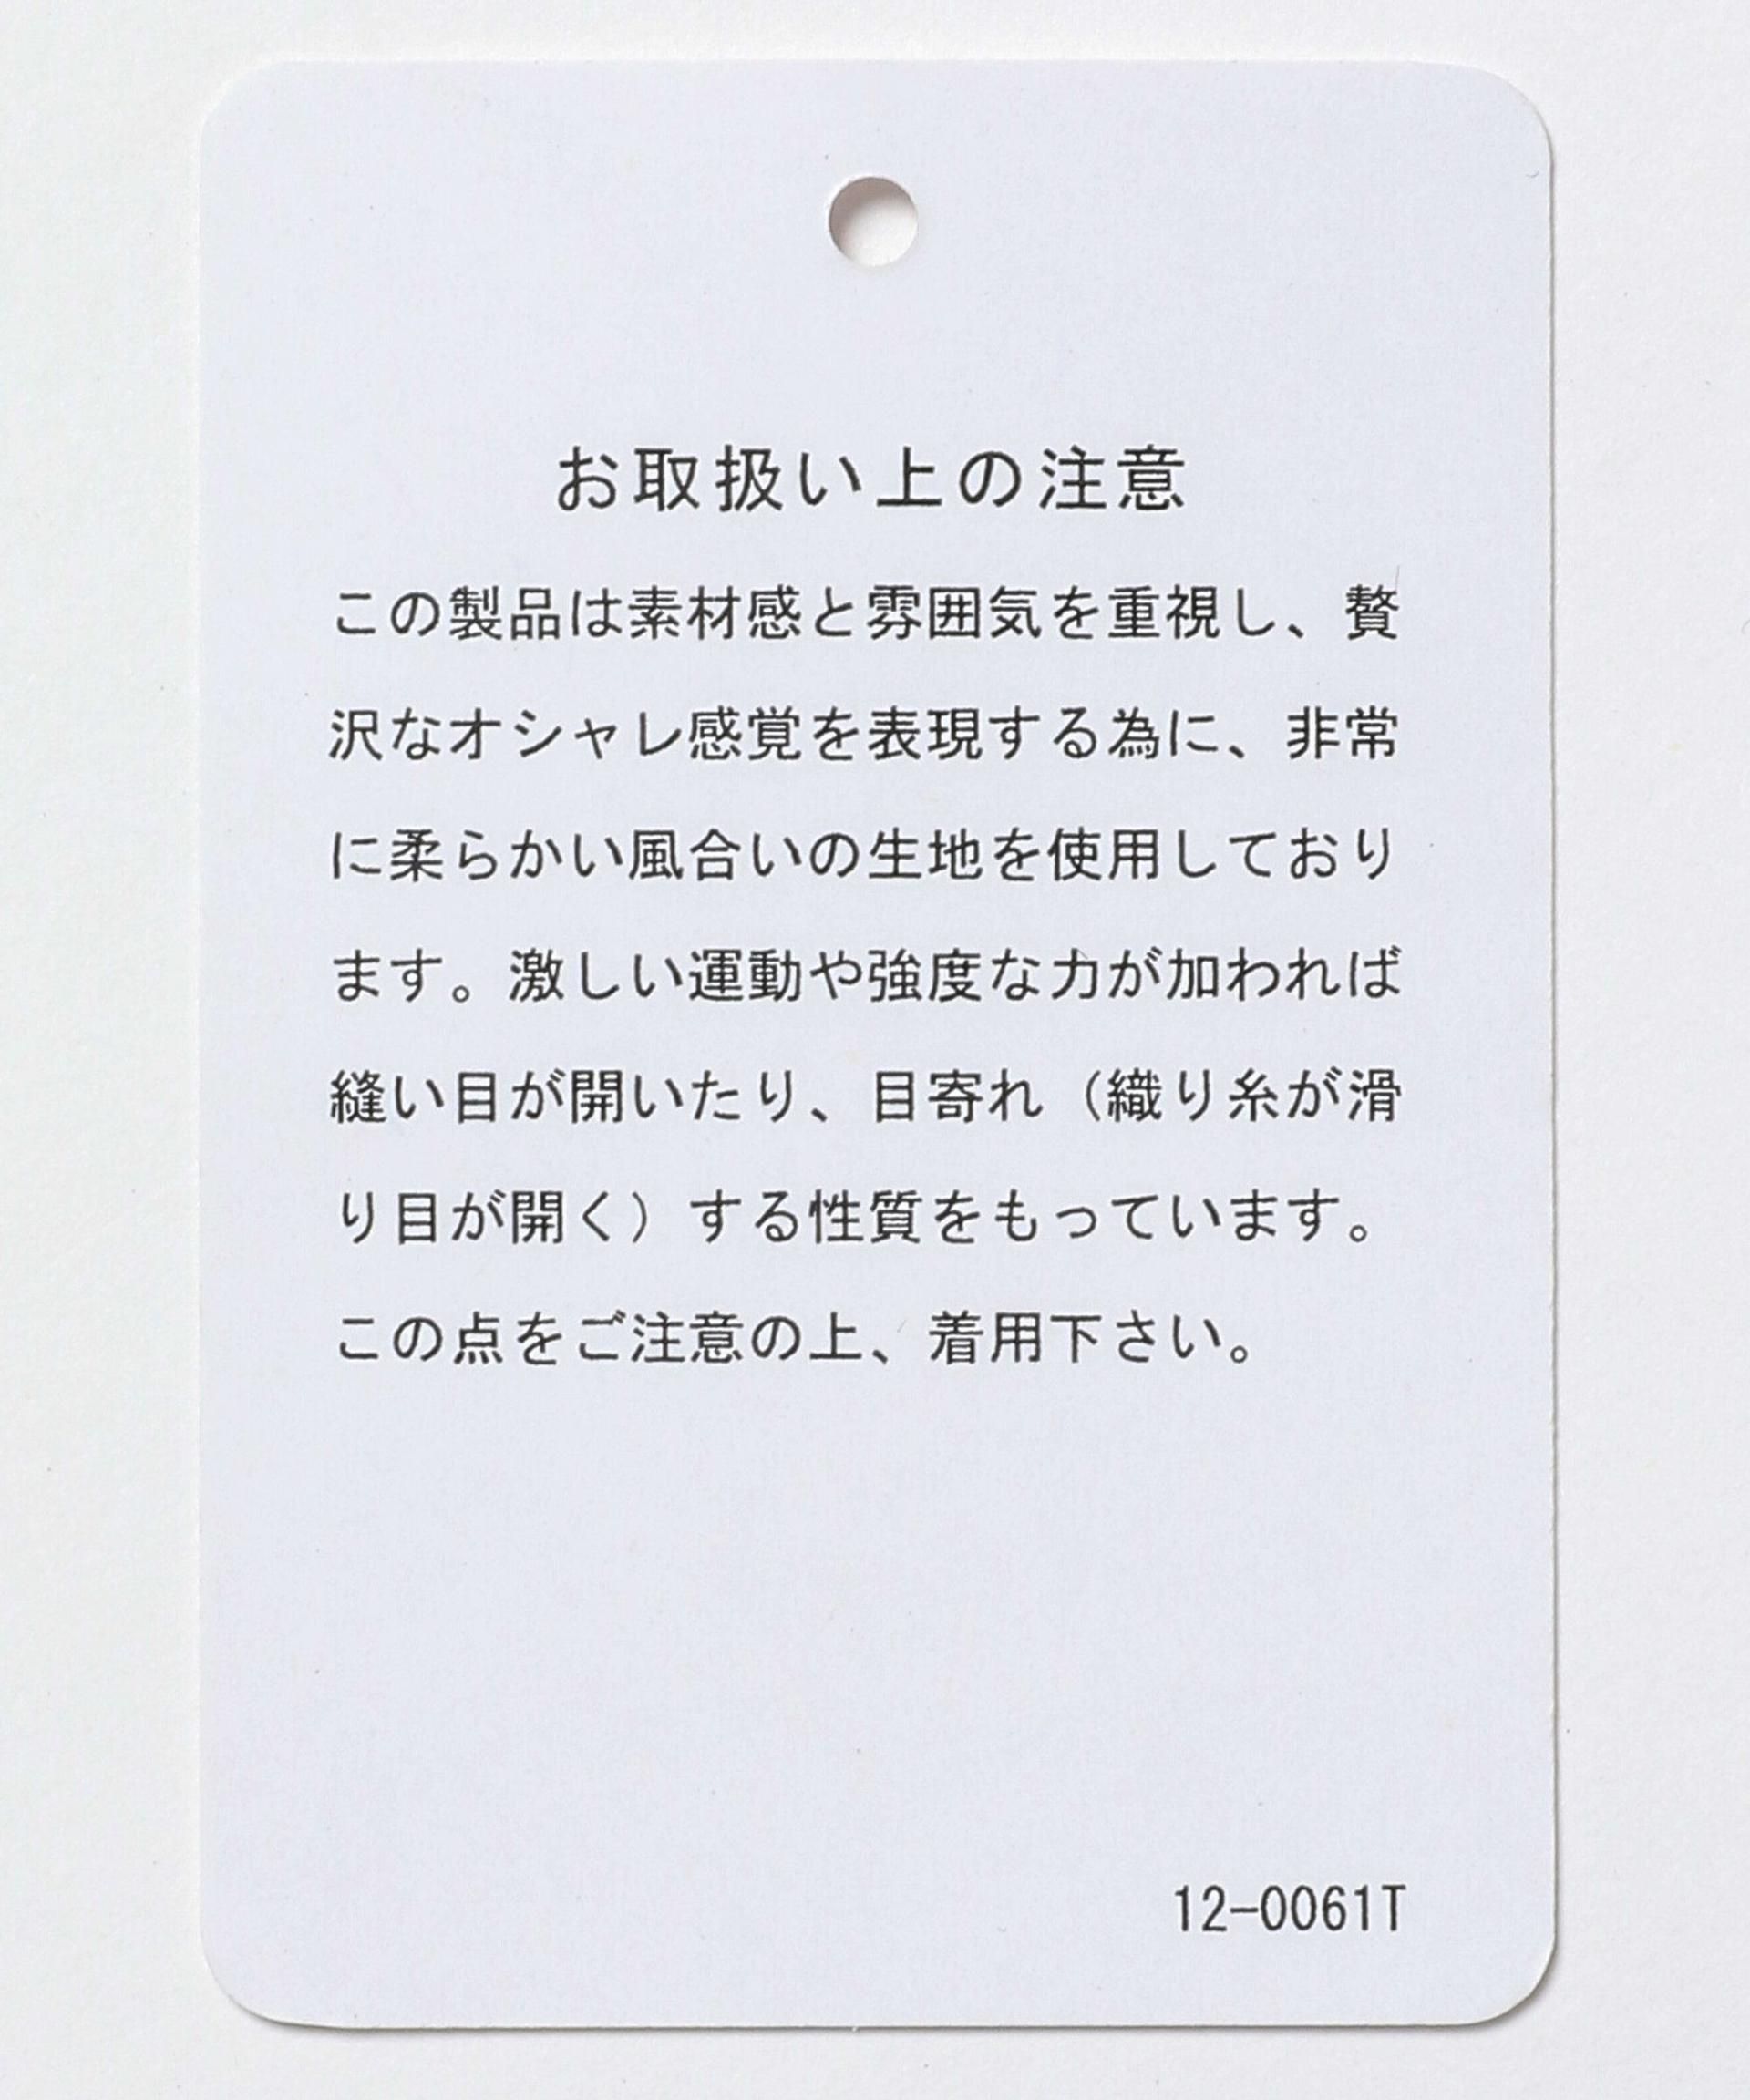 お取扱い上の注意
この製品は素材感と雰囲気を重視し、贅
沢なオシャレ感覚を表現する為に、非常
に柔らかい風合いの生地を使用しており
ます。激しい運動や強度な力が加われば
縫い目が開いたり、目寄れ（織り糸が滑
り目が開く）する性質をもっています。
この点をご注意の上、着用下さい。
12-0061T